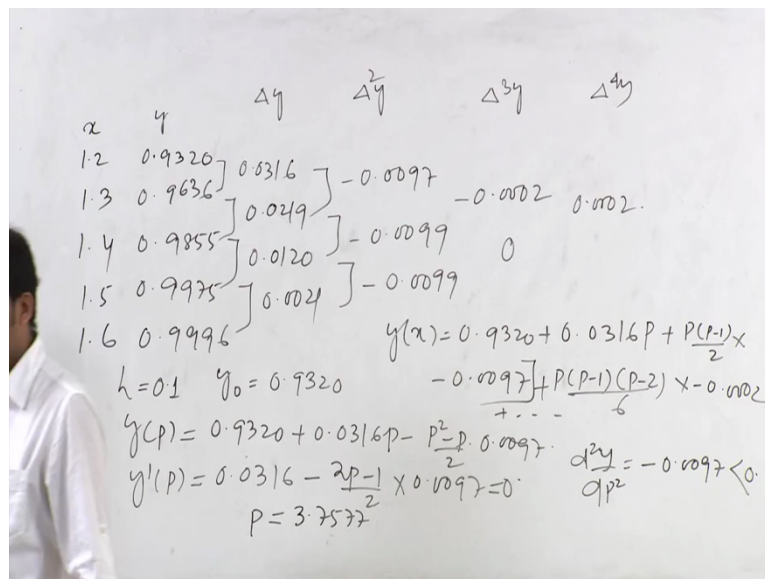 Δy Δ²y Δ³y Δ⁴y
x y
1.2 0.9320 ] 0.0316 ] -0.0097
1.3 0.9636 ] 0.0219 -0.0002 0.0002.
1.4 0.9855 ] 0.0120 ] -0.0099 0
1.5 0.9975 ] 0.0021 ] -0.0099
1.6 0.9996
y(x) = 0.9320 + 0.0316p + P(P-1)/2 ×
-0.0097] + P(P-1)(P-2)/6 × -0.0002
+ . . . .
h = 0.1 y₀ = 0.9320
y(p) = 0.9320 + 0.0316p - p²-p/2 . 0.0097.
y'(p) = 0.0316 - 2p-1/2 × 0.0097 = 0.
d²y/dp² = -0.0097 < 0.
p = 3.7577